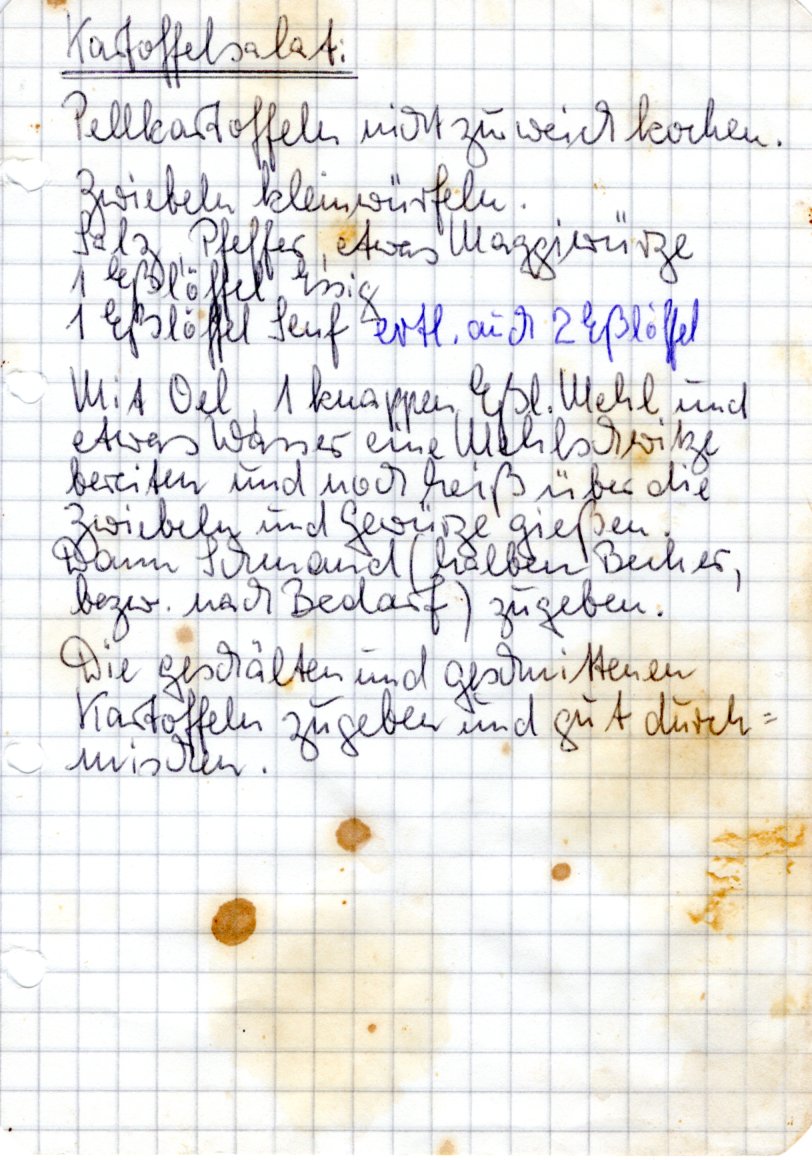 Kartoffelsalat:
Pellkartoffeln nicht zu weich kochen.
Zwiebeln klein würfeln.
Salz, Pfeffer, etwas Maggiwürze
1 Eßlöffel Essig
1 Eßlöffel Senf evtl. auch 2 Eßlöffel
Mit Oel, 1 knappen Eßl. Mehl und
etwas Wasser eine Mehlschwitze
bereiten und noch heiß über die
Zwiebeln und Gewürze gießen.
Dann Schmand (halben Becher,
bezw. nach Bedarf) zugeben.
Die geschälten und geschnittenen
Kartoffeln zugeben und gut durch=
mischen.